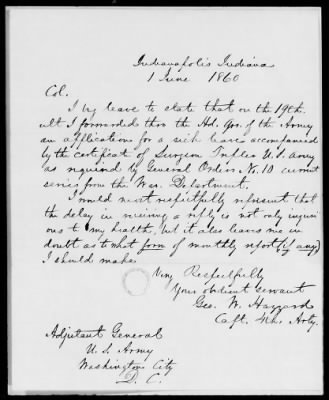 Indianapolis Indiana
1 June 1860
Col.
I beg leave to state that on the 19th
ult I forwarded thro the Hd. Qrs. of the Army
an application for a sick leave accompanied
by the certificate of Surgeon Tripler U.S. Army
as required by General Orders No. 10 current
series from the War Department.
I would most respectfully represent that
the delay in receiving a reply is not only injuri
ous to my health, but it also leaves me in
doubt as to what form of monthly report (if any)
I should make.
Very Respectfully
Your obedient servant
Geo. W. Hazzard
Capt. 4th Arty.
Adjutant General
U.S. Army
Washington City
D.C.